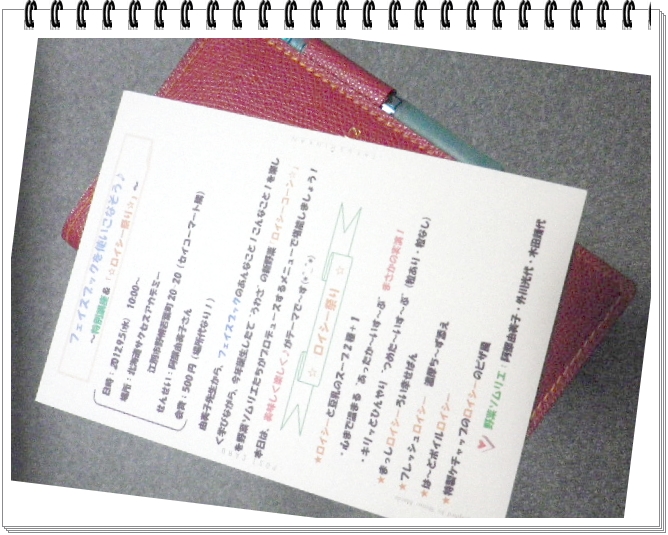 フェイスブックを使いこなそう♪
～特別講座＆「☆ロイシー祭り☆」～
日時：2012.9.5(水) 10:00～
場所：北海道サクセスアカデミー
江別市野幌若葉町20-20（セイコーマート横）
せんせい：阿部由美子さん
会費：500円（場所代なり！）
由美子先生から、フェイスブックのあんなこと！こんなこと！を楽し
く学びながら、今年誕生したて“うわさ”の新野菜「ロイシーコーン☆」
を野菜ソムリエたちがプロデュースするメニューで堪能しましょう！
本日は、美味しく楽しく♪がテーマで～す(*^_^*)
☆ ロイシー祭り ☆
★ロイシーと豆乳のスープ2種＋1
・心まで温まる “あったか～いす～ぷ” まさかの実演！
・キリッとひんやり “つめた～いす～ぷ”（粒あり・粒なし）
★まっしロイシーぷるい幸せぱん
★フレッシュロイシー
★ほ～どボイルロイシー
★特製ケチャップのロイシーのピザ風
野菜ソムリエ：阿部由美子・外川光代・水田雅代